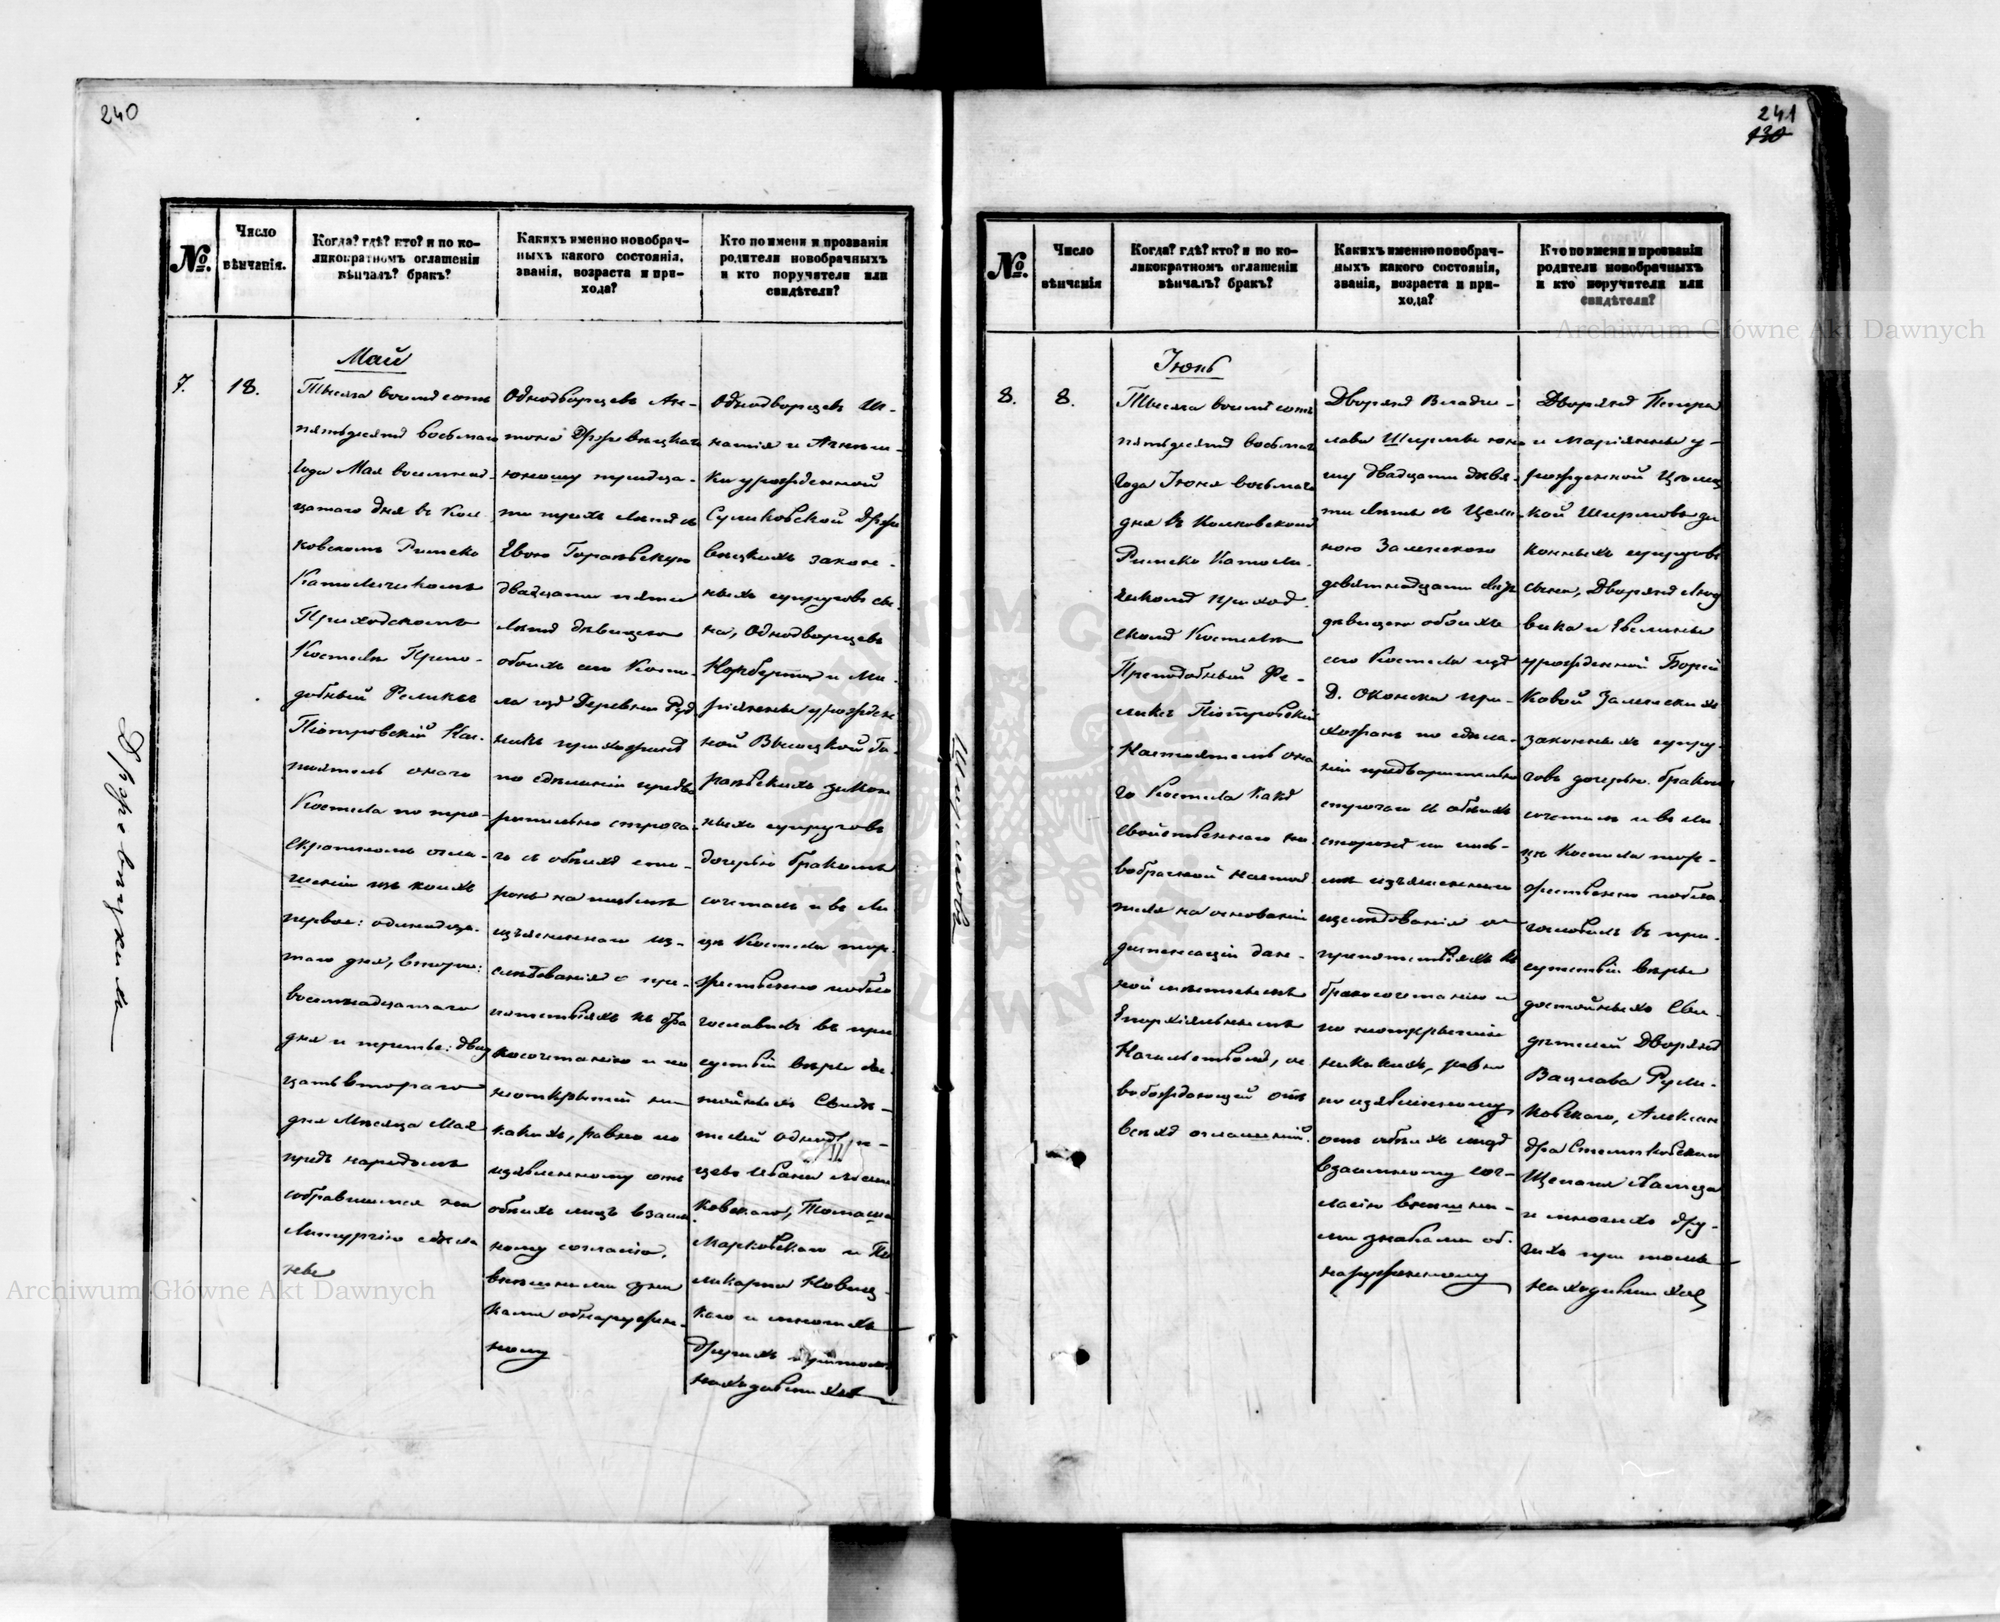 240
№.
Число
вѣнчанія.
Когда? гдѣ? кто? и по ко-
ликократномъ оглашеніи
вѣнчалъ? бракъ?
Какихъ именно новобрач-
ныхъ какого состоянія,
званія, возраста и при-
хода?
Кто по имени и прозванія
родители новобрачныхъ
и кто поручители или
свидѣтели?
Май
7.
18.
Тысяча восемь сотъ
пятьдесятъ восьмаго
года Мая восемнад
цатаго дня въ Кол
ковскомъ Римско
Католическомъ
Приходскомъ
Костелѣ Препо-
добный Феликсъ
Піотровскій Нас-
тоятель онаго
Костела по тро-
екратномъ огла-
шеніи изъ коихъ
первое: одинадца-
таго дня, второе:
восемнадцатаго
дня и третье: двад
цать втораго
дня Мѣсяца Мая
предъ народомъ
собравшимся на
Литургію сдѣла
нѣ
Однодворцевъ Ан-
тона
юношу тридца-
ти трехъ лѣтъ съ
Евою Горанскую
двадцати пяти
лѣтъ дѣвицею
обоихъ сего Косте-
ла изъ Деревни Руд
никъ прихожанъ
по сдѣланіи предва
рительно строга-
го съ обѣихъ сто-
ронъ на письмѣ
изъясненнаго из-
слѣдованія о пре-
пятствіяхъ къ бра
косочетанію и по
неоткрытіи ни
какихъ, равно по
изъявленному отъ
обѣихъ лицъ взаим
ному согласію,
внѣшними зна
ками обнаружен-
ному
Однодворцевъ Иг-
натія и Агнеш-
ки урожденной
Суликовской Држе
вецкихъ закон-
ныхъ супруговъ сы-
на, Однодворцевъ
Норберта и Ма-
ріянны урожден
ной Высоцкой Го-
ранскихъ закон
ныхъ супруговъ
дочерью бракомъ
сочеталъ и въ ли
цѣ Костела торж-
жественно побла
гословилъ въ при
сутствіи вѣры до-
стойныхъ Свидѣ-
телей однодвор-
цевъ Ивана
ковскаго, Томаша
Марковскаго и По
ликарпа Новиц-
каго и многихъ
другихъ при томъ
находившихся
Држевецкими
241
130
№.
Число
вѣнчанія
Когда? гдѣ? кто? и по ко-
ликократномъ оглашеніи
вѣнчалъ? бракъ?
Какихъ именно новобрач-
ныхъ какого состоянія,
званія, возраста и при-
хода?
Кто по имени и прозванія
родители новобрачныхъ
и кто поручители или
свидѣтели?
Іюнь
8.
8.
Тысяча восемь сотъ
пятьдесятъ восьмаго
года Іюня восьмаго
дня въ Колковскомъ
Римско Католи-
ческомъ приход
скомъ Костелѣ
Преподобный Фе-
ликсъ Піотровскій
Настоятель она
го Костела какъ
свойственнаго но
вобрачной настоя
теля на основаніи
диспенсаціи дан-
ной мѣстнымъ
Епархіяльнымъ
Начальствомъ, ос
вобождающей отъ
всѣхъ оглашеній.
Дворянъ Влади-
слава Ширмы юно
шу двадцати девя-
ти лѣтъ съ Цели-
ною Залескою
девятнадцати лѣтъ
дѣвицею обоихъ
сего Костела изъ
Д. Оконска при-
хожанъ по сдѣла-
ніи предварительно
строгаго съ обѣихъ
сторонъ на пись-
мѣ изъясненнаго
изслѣдованія о
препятствіяхъ къ
бракосочетанію и
по неоткрытіи
никакихъ, равно
по изъявленному
отъ обѣихъ лицъ
взаимному сог-
ласію внѣшни-
ми знаками об-
наруженному
Дворянъ Петра
и Маріянны у-
рожденной
кой Ширмовъ за
конныхъ супруговъ
сына, Дворянъ Люд
вика и Евелины
урожденной
Залескихъ
законныхъ супру-
говъ дочерью бракомъ
сочеталъ и въ ли-
цѣ Костела торж-
жественно побла-
гословилъ въ при-
сутствіи вѣры
достойныхъ Сви-
дѣтелей Дворянъ
Вацлава Рули-
ковскаго, Алексан
дра Стемпковскаго
Щепана
и многихъ дру-
гихъ при томъ
находившихся
Ширмовъ
Archiwum Główne Akt Dawnych
Archiwum Główne Akt Dawnych